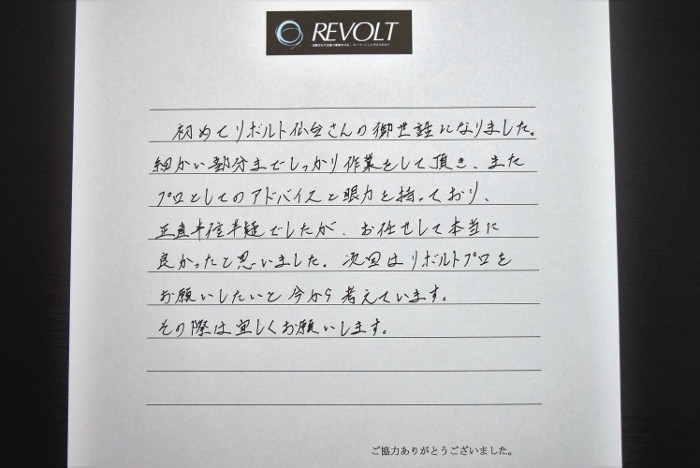 REVOLT
初めてリボルト仙台さんの御世話になりました。
細かい部分までしっかり作業をして頂き、また
プロとしてのアドバイスと眼力を持っており、
正直半信半疑でしたが、お任せして本当に
良かったと思いました。次回はリボルトプロを
お願いしたいと今から考えています。
その際は宜しくお願いします。
ご協力ありがとうございました。